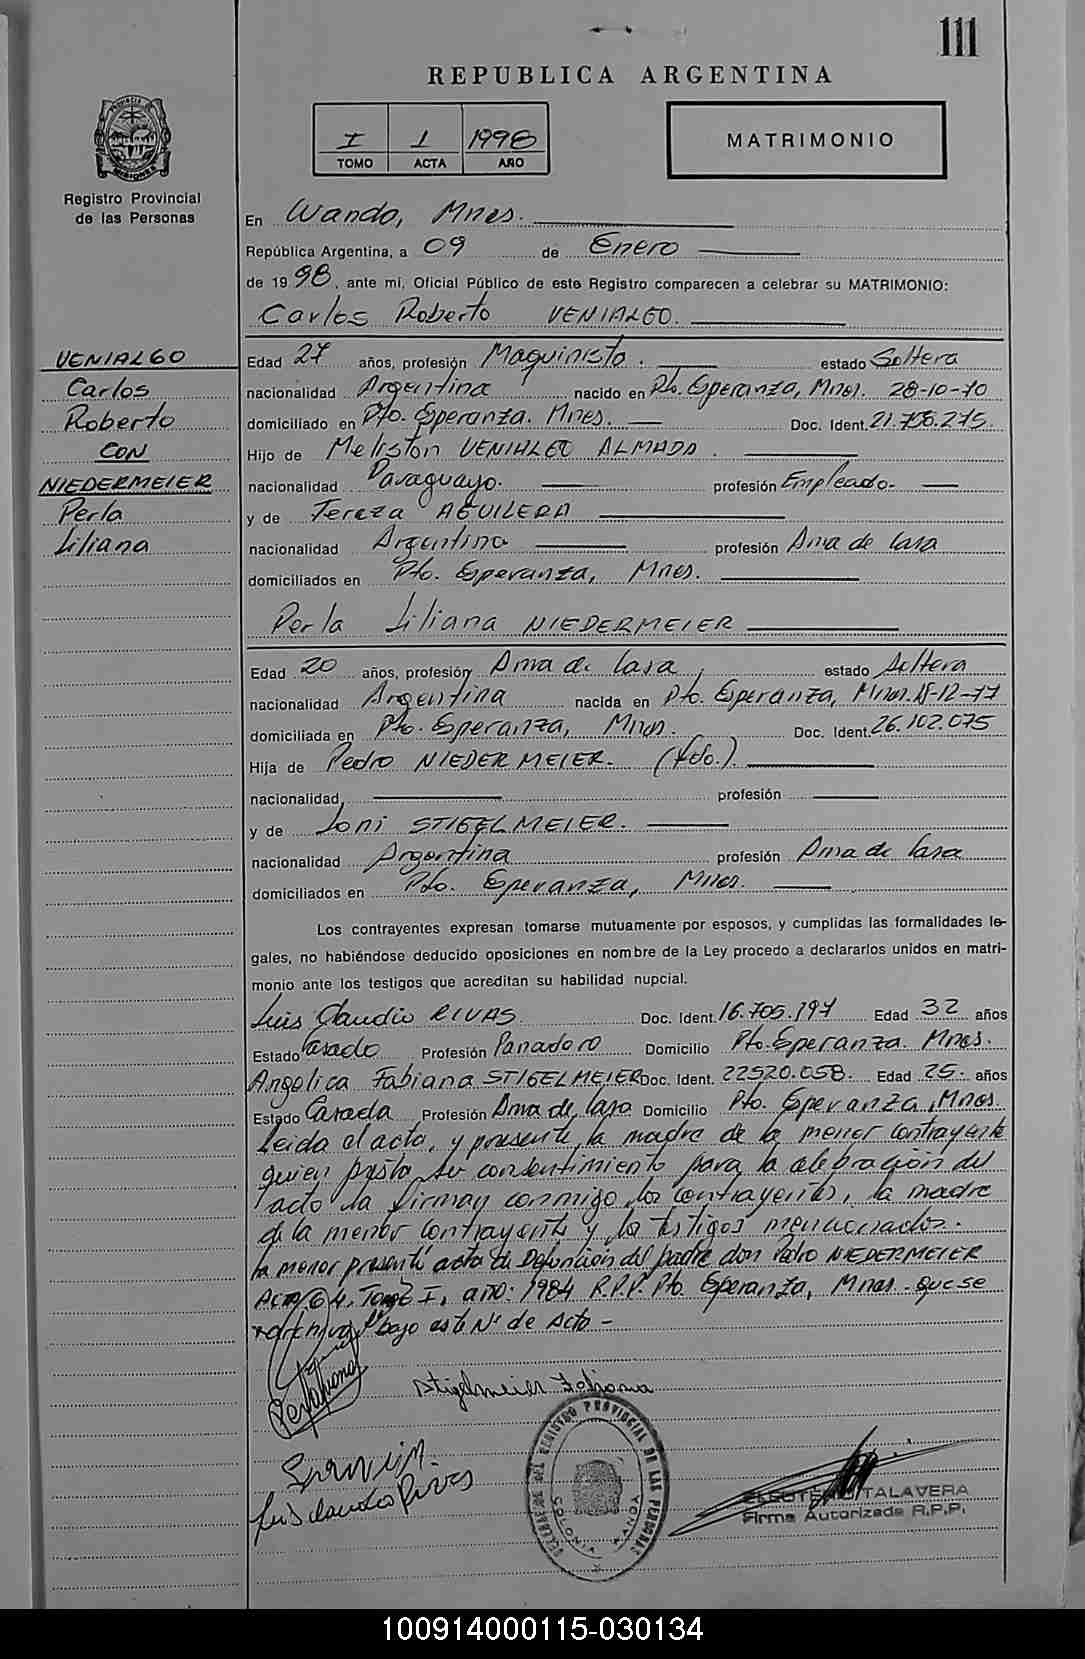 111
REPUBLICA ARGENTINA
I 1 1998
TOMO ACTA AÑO
MATRIMONIO
PROVINCIA DE MISIONES
Registro Provincial
de las Personas
En Wanda, Mnes.
República Argentina, a 09 de Enero
de 1998, ante mí, Oficial Público de este Registro comparecen a celebrar su MATRIMONIO:
Carlos Roberto VENIALGO.
VENIALGO
Carlos
Roberto
CON
NIEDERMEIER
Perla
Liliana
Edad 27 años, profesión Maquinista. estado Soltera
nacionalidad Argentina nacido en Pto. Esperanza, Mnes. 28-10-70
domiciliado en Pto. Esperanza. Mnes. Doc. Ident. 21.758.275.
Hijo de Meliston VENIALGO ALMADA.
nacionalidad Paraguayo. profesión Empleado.
y de Tereza AGUILERA
nacionalidad Argentina profesión Ama de Casa
domiciliados en Pto. Esperanza, Mnes.
Perla Liliana NIEDERMEIER
Edad 20 años, profesión Ama de Casa, estado Soltera
nacionalidad Argentina nacida en Pto. Esperanza, Mnes. 15-12-77
domiciliada en Pto. Esperanza, Mnes. Doc. Ident. 26.102.075
Hija de Pedro NIEDERMEIER. (fdo.).
nacionalidad profesión
y de Loni STIGELMEIER.
nacionalidad Argentina profesión Ama de Casa
domiciliados en Pto. Esperanza, Mnes.
Los contrayentes expresan tomarse mutuamente por esposos, y cumplidas las formalidades le-
gales, no habiéndose deducido oposiciones en nombre de la Ley procedo a declararlos unidos en matri-
monio ante los testigos que acreditan su habilidad nupcial.
Luis Claudio RIVAS Doc. Ident. 16.705.197 Edad 32 años
Estado Casado Profesión Panadero Domicilio Pto. Esperanza. Mnes.
Angelica Fabiana STIGELMEIER Doc. Ident. 22520.058. Edad 25. años
Estado Casada Profesión Ama de Casa Domicilio Pto. Esperanza, Mnes.
Leida el acta, y presente la madre de la menor contrayente
quien presta su consentimiento para la celebración del
acto la firman conmigo los contrayentes, la madre
de la menor contrayente y los testigos mencionados.
la menor presentó acta de Defunción del padre don Pedro NIEDERMEIER
Acta 64, Tomo I, año: 1984 R.P.P. Pto. Esperanza, Mnes. que se
archiva bajo este Nº de Acta -
Stigelmeier Fabiana
Luis Claudio Rivas
REGISTRO PROVINCIAL DE LAS PERSONAS
COLONIA WANDA
ELEUTERIO TALAVERA
Firma Autorizada R.P.P.
100914000115-030134